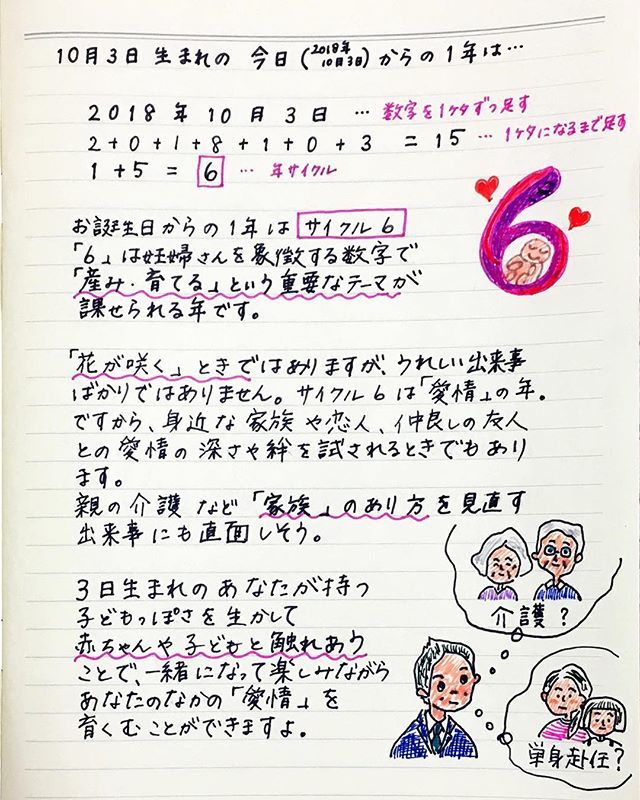 10月3日 生まれの 今日(2018年10月3日)からの1年は…
2018年10月3日 … 数字を1ケタずつ足す
2+0+1+8+1+0+3 = 15 … 1ケタになるまで足す
1+5=6 … 年サイクル
6
お誕生日からの1年は サイクル6
「6」は妊婦さんを象徴する数字で
「産み・育てる」という重要なテーマが
課せられる年です。
「花が咲く」ときではありますが、うれしい出来事
ばかりではありません。サイクル6は「愛情」の年。
ですから、身近な家族や恋人、仲良しの友人
との愛情の深さや絆を試されるときでもあり
ます。
親の介護など「家族」のあり方を見直す
出来事にも直面しそう。
介護?
3日生まれのあなたが持つ
子どもっぽさを生かして
赤ちゃんや子どもと触れあう
ことで、一緒になって楽しみながら
あなたのなかの「愛情」を
育くむことができますよ。
単身赴任?